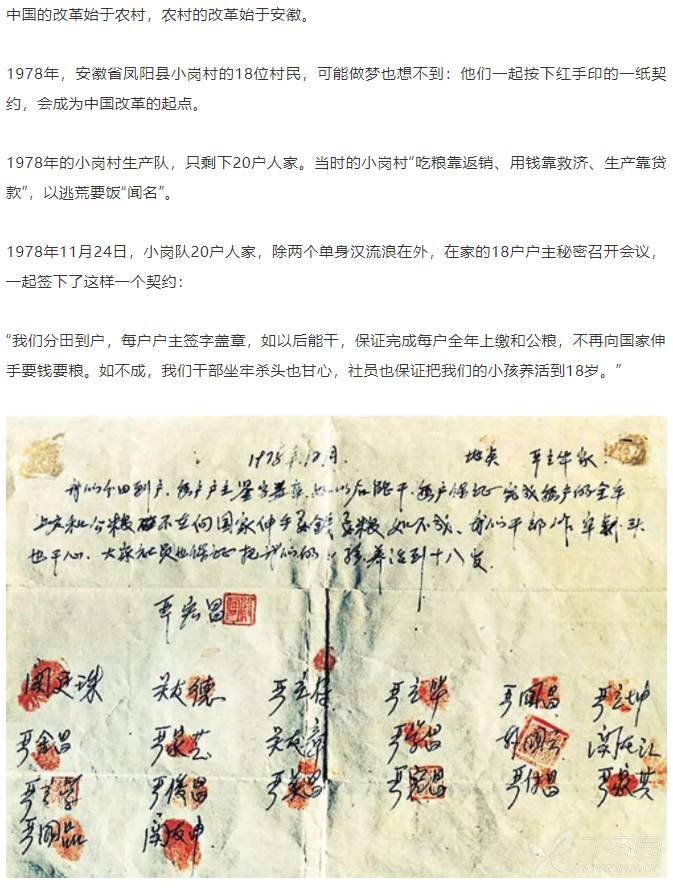 中国的改革始于农村，农村的改革始于安徽。
1978年，安徽省凤阳县小岗村的18位村民，可能做梦也想不到：他们一起按下红手印的一纸契
约，会成为中国改革的起点。
1978年的小岗村生产队，只剩下20户人家。当时的小岗村“吃粮靠返销、用钱靠救济、生产靠贷
款”，以逃荒要饭“闻名”。
1978年11月24日，小岗队20户人家，除两个单身汉流浪在外，在家的18户户主秘密召开会议，
一起签下了这样一个契约：
“我们分田到户，每户户主签字盖章，如以后能干，保证完成每户全年上缴和公粮，不再向国家伸
手要钱要粮。如不成，我们干部坐牢杀头也甘心，社员也保证把我们的小孩养活到18岁。”
1978年12月. 地点 严立华家.
我们分田到户.每户户主签字盖章.如以后能干.每户保证完成每户的全年
上交和公粮 不在向国家伸手要钱要粮 如不成.我们干部作牢杀头
也干心.大家社员也保证把我们的小孩养活到十八岁.
严宏昌
关廷珠 关友德 严立符 严立华 严国昌 严立坤
严金昌 严家芝 关友章 严学昌 韩国云 关友江
严立学 严俊昌 严美昌 严宏昌 严付昌 严家其
严国品 关友申